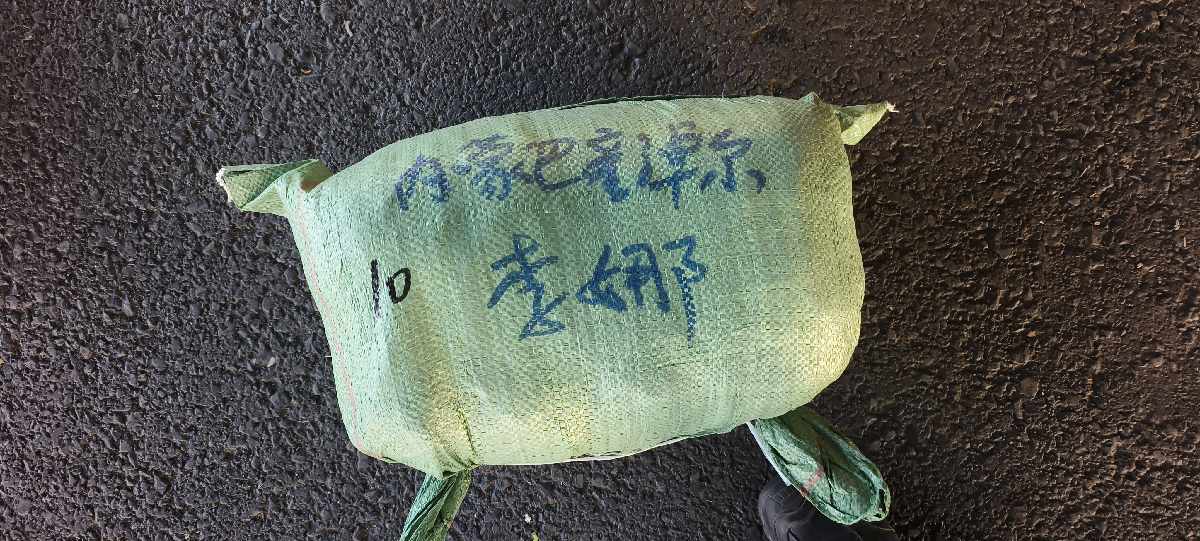 内蒙巴彦淖尔
李娜
10